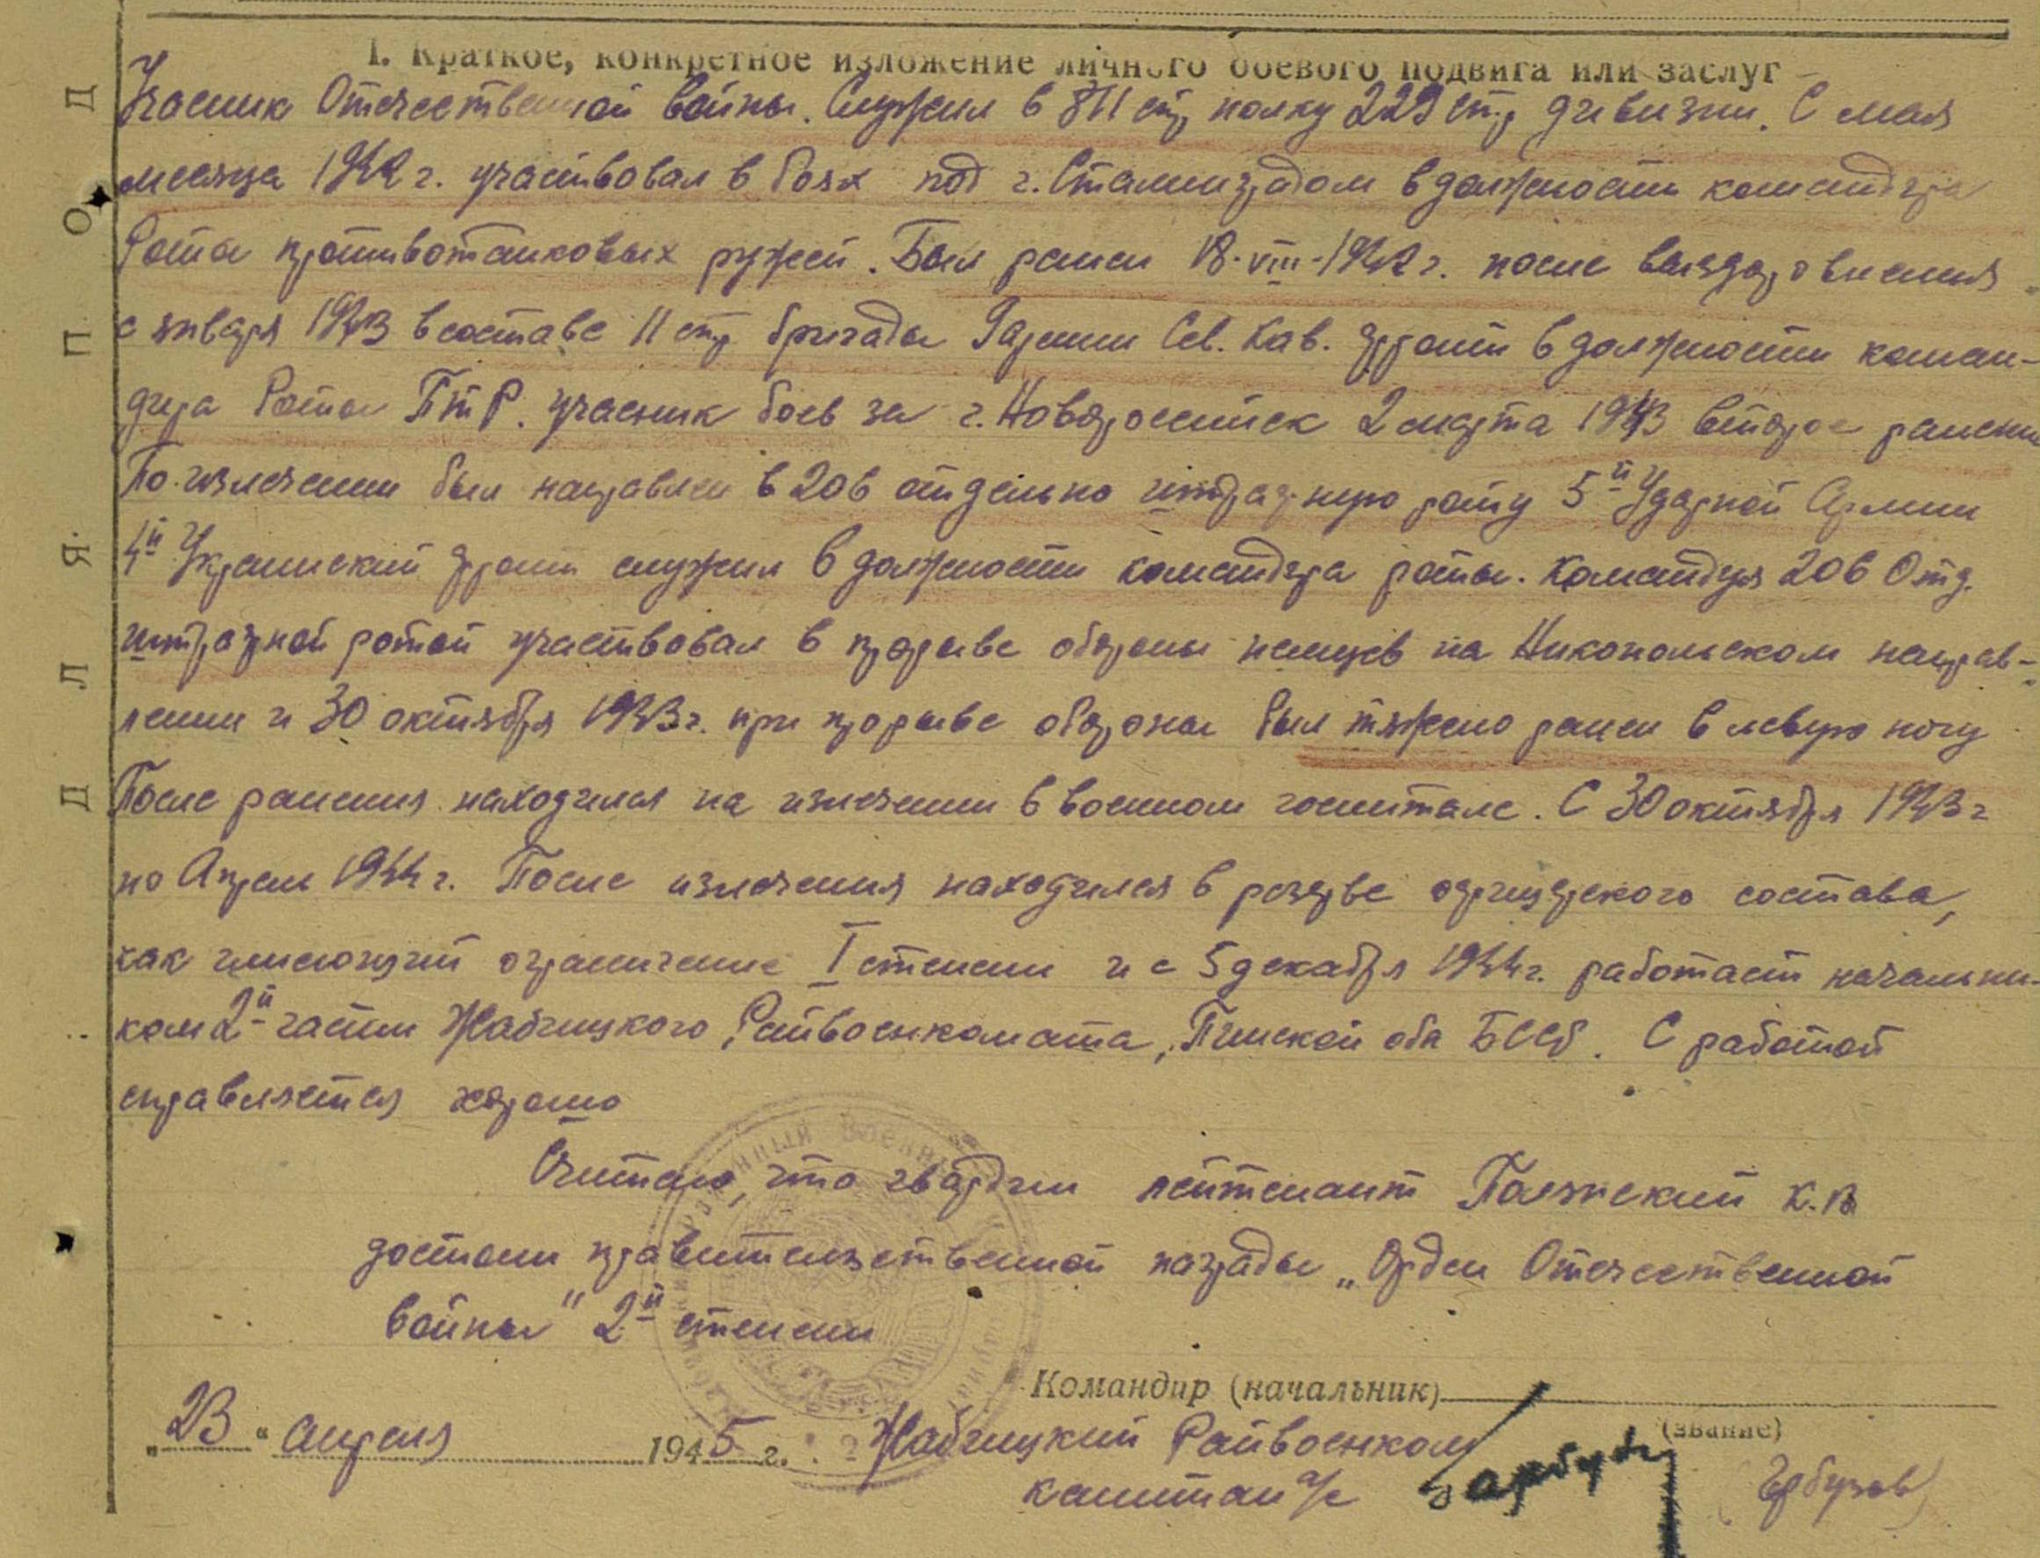 I. Краткое, конкретное изложение личного боевого подвига или заслуг
Учасник Отечественной войны. Служил в 811 стр полку 229 стр дивизии. С мая
месяца 1942 г. участвовал в боях под г. Сталинградом в должности командира
Роты противотанковых ружей. Был ранен 18.VIII-1942 г. после выздоровления
с января 1943 в составе 11 стр бригады 9 армии Сев. Кав. фронт в должности коман-
дира Роты ПТР. учасник боев за г. Новороссийск 2 марта 1943 второе ранение
По излечении был направлен в 206 отдельно штрафную роту 5й Ударной Армии
4й Украинский фронт служил в должности командира роты. Командуя 206 Отд.
штрафной ротой участвовал в прорыве обороны немцев на Никопольском направ-
лении и 30 октября 1943 г. при прорыве обороны был тяжело ранен в левую ногу
После ранения находился на излечении в военном госпитале. С 30 октября 1943 г
по Апрель 1944 г. После излечения находился в резерве офицерского состава,
как имеющий ограничение I степени и с 5 декабря 1944 г. работает начальни-
ком 2й части Жабчицкого Райвоенкомата, Пинской обл БССР. С работой
справляется хорошо
Считаю, что гвардии лейтенант Полянский К.В
достоин правительственной награды „Орден Отечественной
войны" 2й степени
Командир (начальник)
(звание)
„23" апреля 1945 г. Жабчицкий Райвоенком
капитан а/с
(Гарбузов)
ДЛЯ ПОД